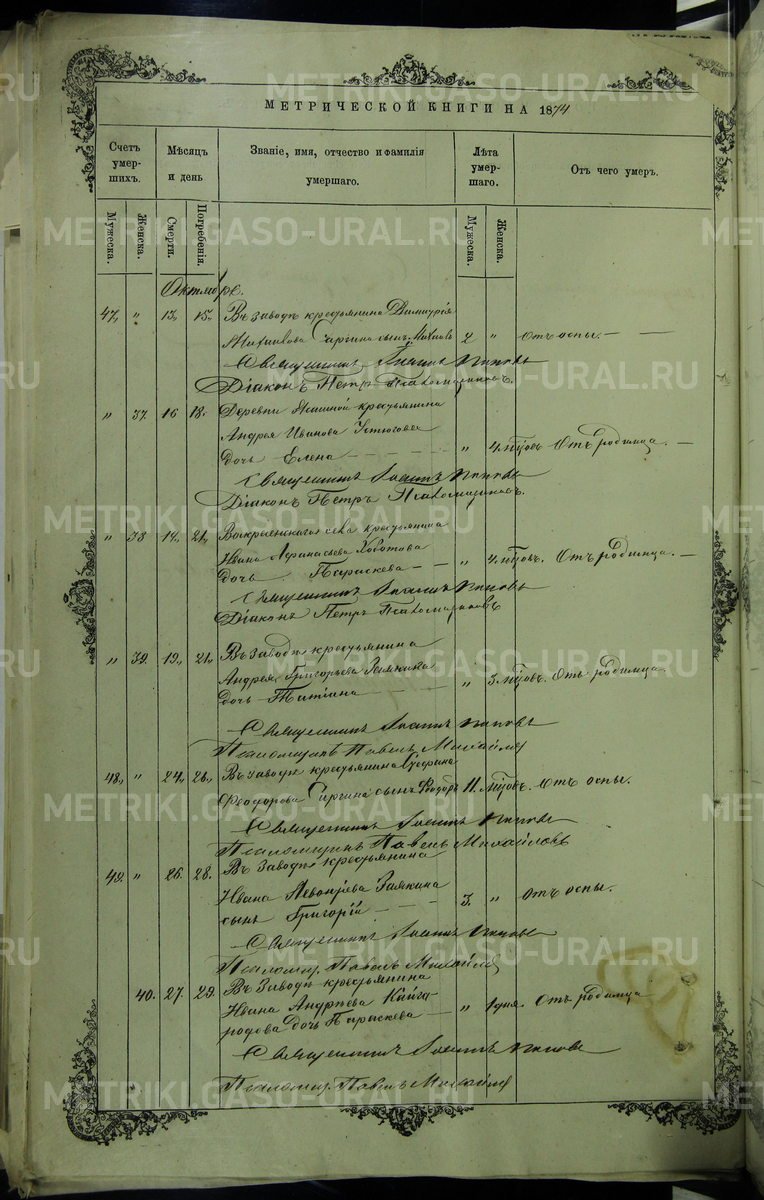 МЕТРИЧЕСКОЙ КНИГИ НА 1874
Счетъ умершихъ. Мѣсяцъ и день Званіе, имя, отчество и фамилія умершаго. Лѣта умершаго. Отъ чего умеръ.
Мужеска. Женска. Смерти. Погребенія. Мужеска. Женска.
Октябрь.
47, " 13, 15, Въ заводѣ крестьянина Димитрія
сынъ 2 " Отъ оспы. —
Священникъ Іоаннъ Поповъ
Діаконъ Петръ
" 37. 16 18. Деревни крестьянина
Андрея Иванова Устюгова
дочь Елена — " 4. мцовъ Отъ родимца. —
Священникъ Іоаннъ Поповъ
Діаконъ Петръ
" 38 21, Воскресенскаго села крестьянина
Ивана Афанасьева Хоботова
дочь Параскева — " 4. мцовъ. Отъ родимца. —
Священникъ Іоаннъ Поповъ
Діаконъ Петръ
" 39. 19, 21, Въ заводѣ крестьянина
Андрея Григорьева Замкина
дочь Татіана — " 3. мцовъ. Отъ родимца.
Священникъ Іоаннъ Поповъ
Псаломщикъ Павелъ Михайловъ
48, " 24, 26, Въ заводѣ крестьянина
Феодорова сынъ 11. мцовъ. Отъ оспы.
Священникъ Іоаннъ Поповъ
Псаломщикъ Павелъ Михайловъ
49. " 26. 28. Въ заводѣ крестьянина
Ивана Левонтіева Замкина
сынъ Григорій — 3. " Отъ оспы.
Священникъ Іоаннъ Поповъ
Псаломщ. Павелъ Михайловъ
40. 27. 29. Въ заводѣ крестьянина
Ивана Андреева Кайго-
родова дочь Параскева — " 1 дня. Отъ родимца
Священникъ Іоаннъ Поповъ
Псаломщ. Павелъ Михайловъ
METRIKI.GASO-URAL.RU